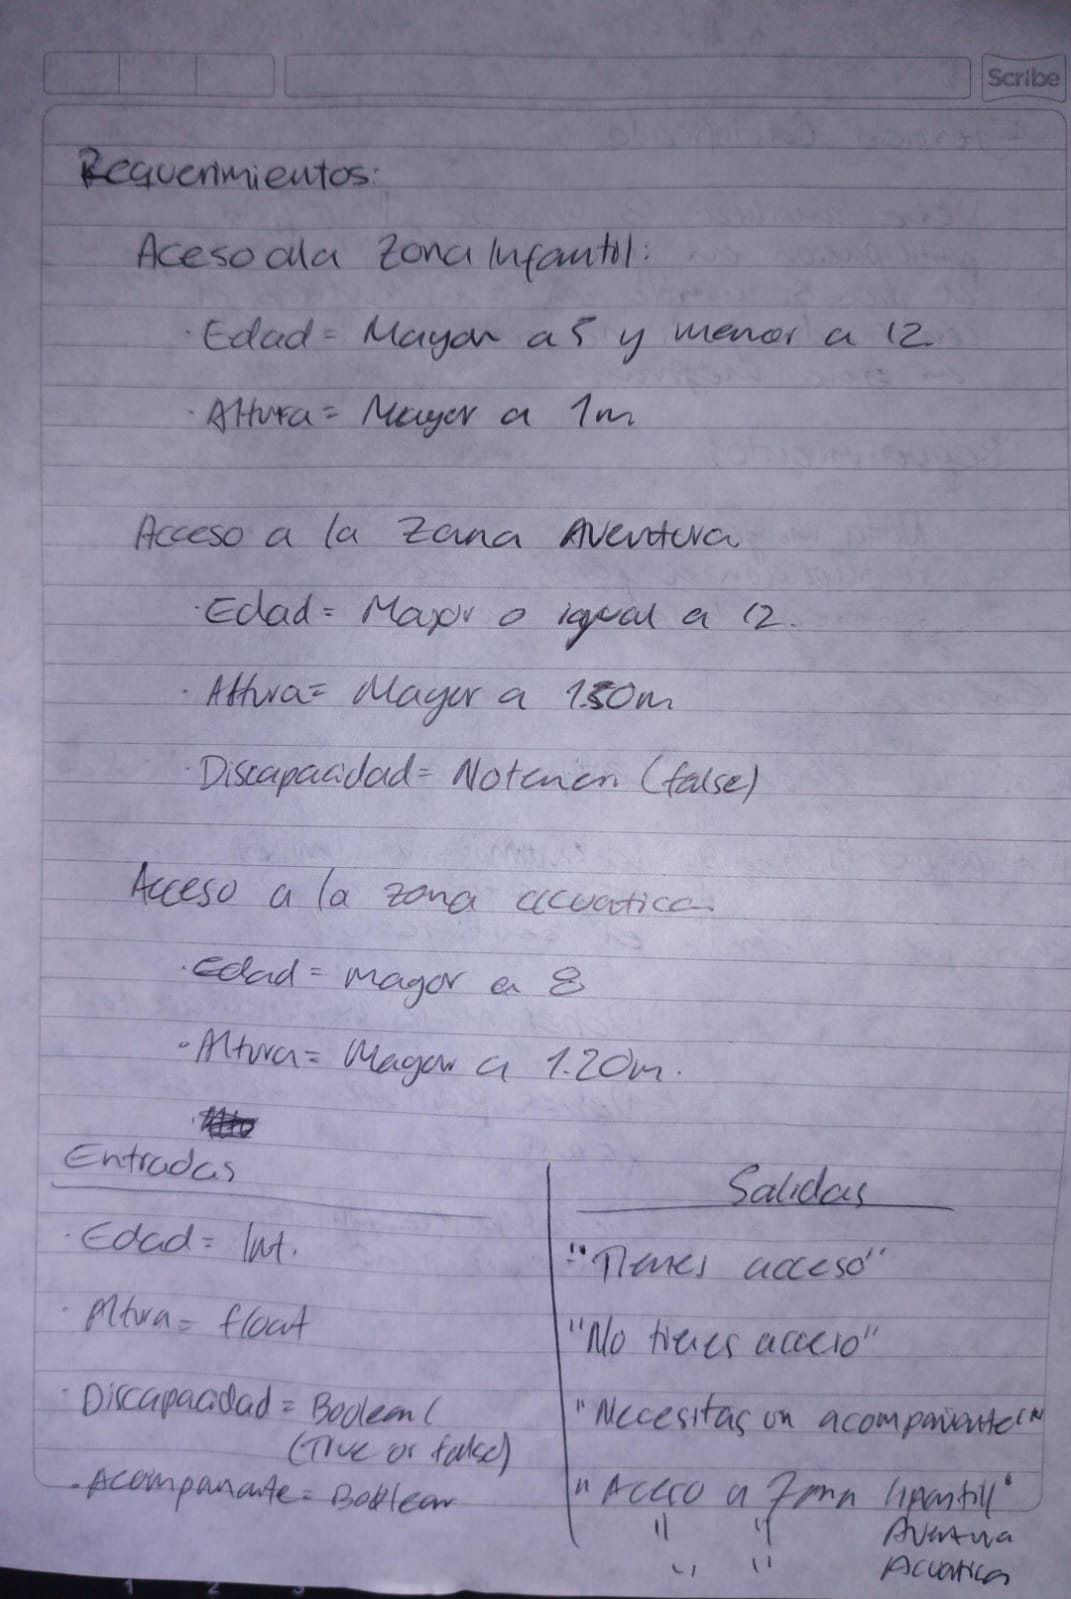 Scribe
Requerimientos:
Aceso a la Zona Infantil:
· Edad = Mayor a 5 y menor a 12
· Altura = Mayor a 1m
Acceso a la Zona Aventura
· Edad = Mayor o igual a 12.
· Altura = Mayor a 1.50m
· Discapacidad = No tener (false)
Acceso a la zona acuatica.
· Edad = mayor a 8
· Altura = Mayor a 1.20m.
Entradas
Salidas
· Edad = Int.
· Altura = float
· Discapacidad = Boolean (
(True or false)
· Acompanante = Boolean
"Tienes acceso"
"No tienes acceso"
"Necesitas un acompañante"
"Acceso a Zona Infantil"
" " Aventura
" " Acuatica
1 2 3